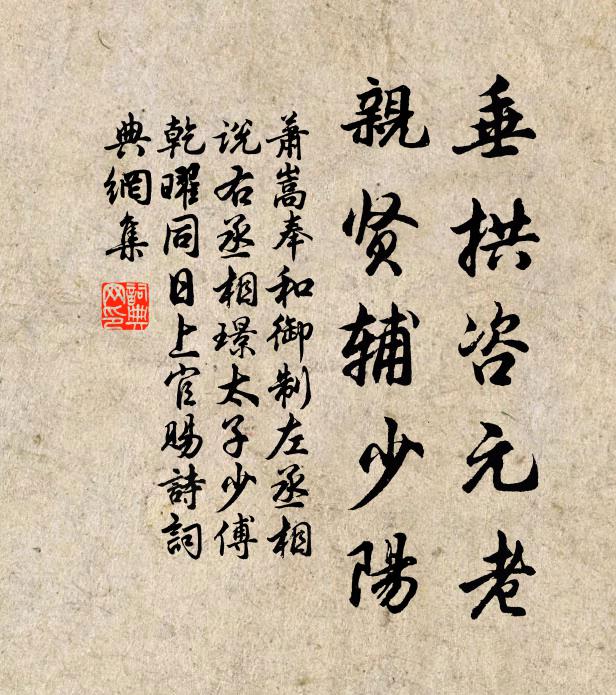 垂拱咨元老
親贤辅少陽
萧嵩奉和御制左丞相
说右丞相璟太子少傅
乾曜同日上官賜詩詞
典網集
詞典
网印